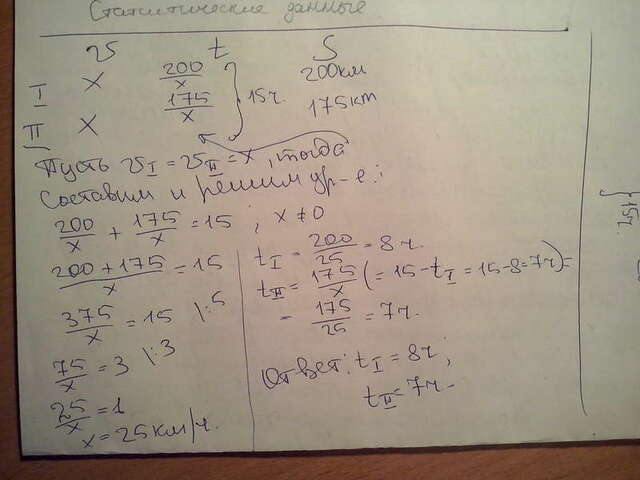 Статистические данные
v t S
I x 200/x 200км
II x 175/x } 15ч. 175км
Пусть v I = v II = x, тогда
Составим и решим ур-е:
200/x + 175/x = 15 ; x ≠ 0
200+175/x = 15
375/x = 15 |:5
75/x = 3 |:3
25/x = 1
x = 25км/ч.
t I = 200/25 = 8ч.
t II = 175/x (= 15 - t I = 15-8=7ч) =
= 175/25 = 7ч.
Ответ: t I = 8ч;
t II = 7ч.